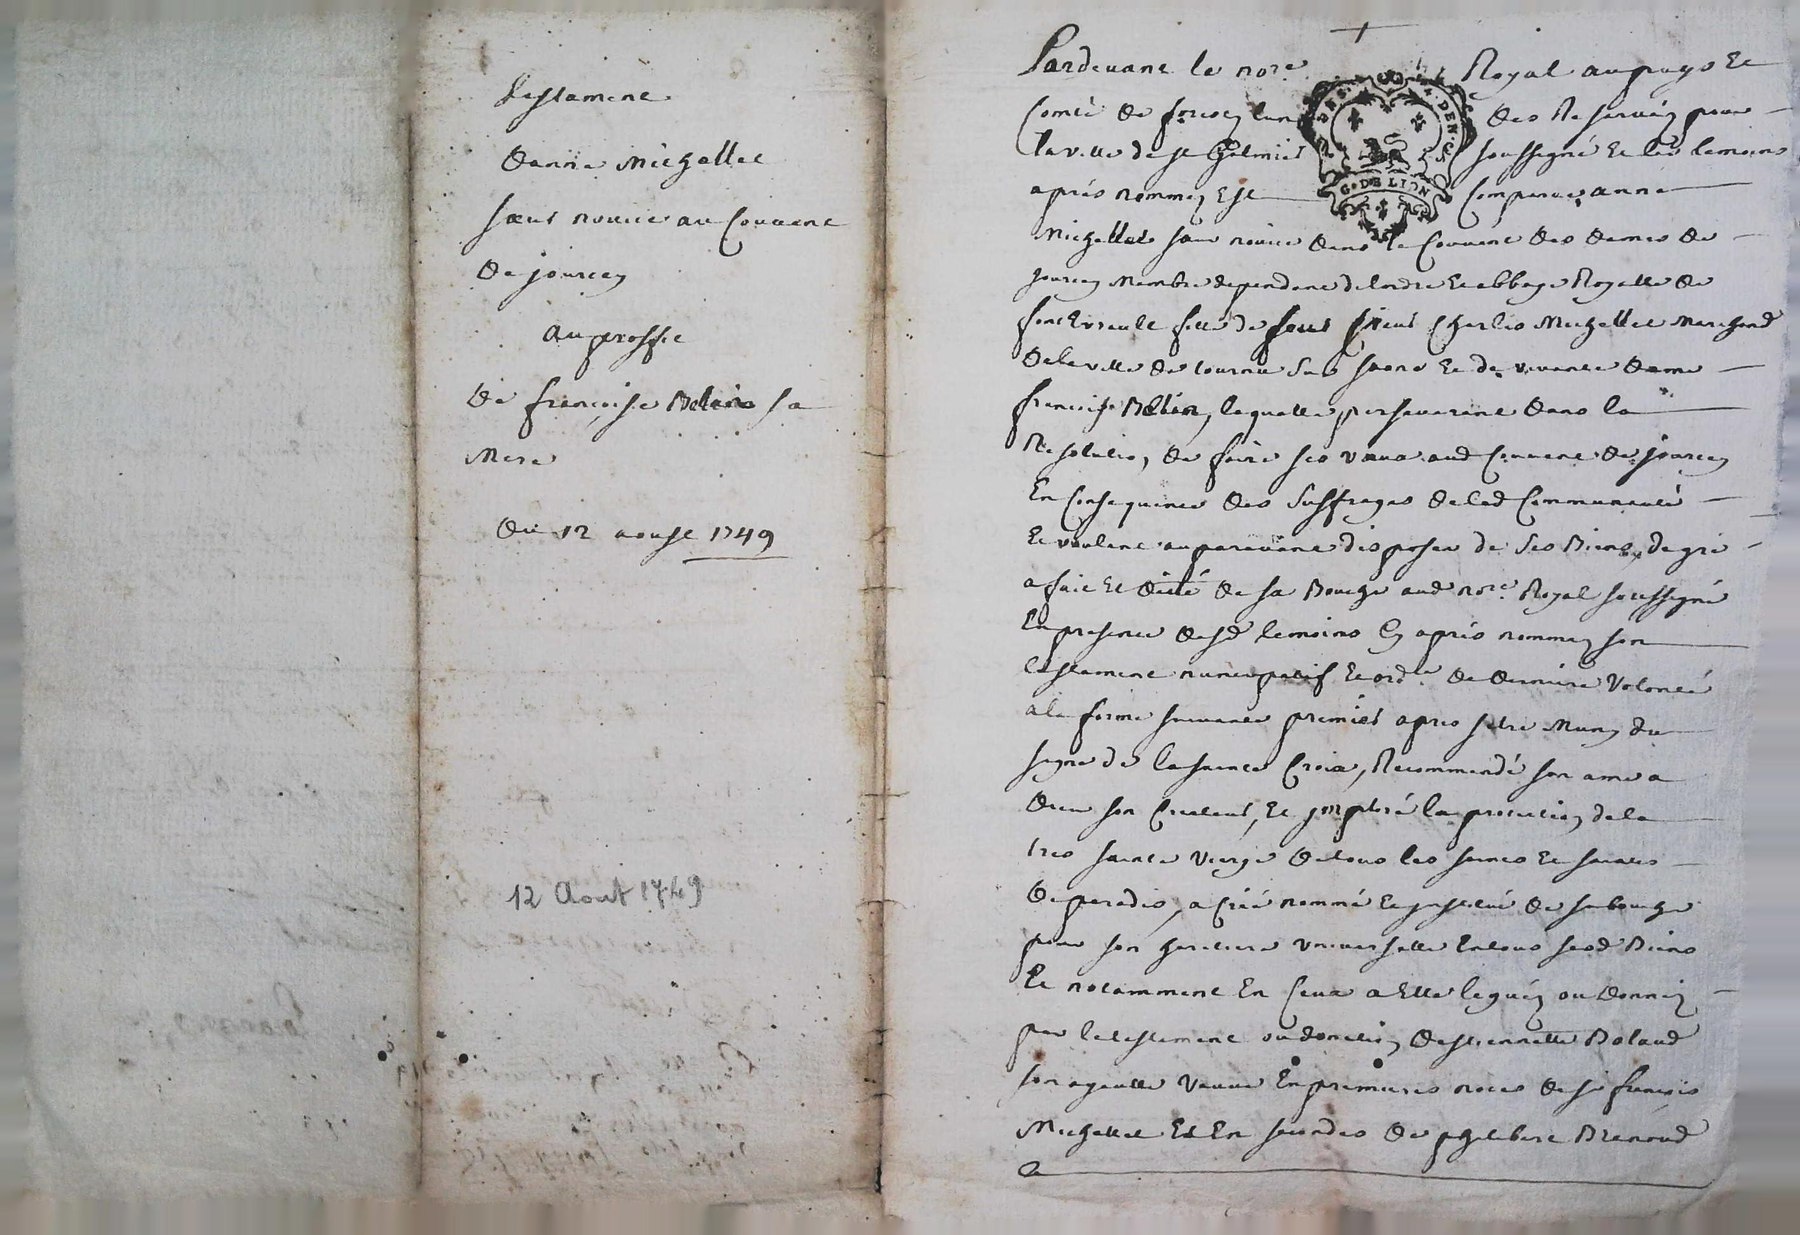 Testament
d'anne Michallet
sœur novice au Couvent
de jourcey
au proffit
de françoise Belin sa
Mere
du 12 aoust 1749
12 Aout 1749
Pardevant le nore Royal au pays et
Comté de forest des Reservés pour
la ville de st Galmier soussigné et les temoins
après nommez Est Comparue anne
Michallet sœur novice dans le Couvent des dames de
jourcey Membre dependant de l'ordre et abbaye Royalle de
fontevrault fille de sieur Charles Michallet Marchand
de la ville de tournu sur saone et de vivante dame
françoise Belin, laquelle perseverant dans la
Resolution de faire ses vœux aud Couvent de jourcey
En Consequence des suffrages de lad Communauté
Et voulant auparavant disposer de ses Biens, de gré
a fait et dicté de sa Bouche aud nore Royal soussigné
En presence desd temoins Cy après nommez son
testament nuncupatif et ordce de derniere volonté
a la forme suivante premier apres setre Muny du
signe de la sainte Croix, Recommandé son ame a
dieu son Createur, et jmploré la protection de la
tres sainte vierge de tous les saints et saintes
de paradis, a Créé nommé et jnstitué de sa bouche
pour son heritiere universelle en tous sesd Biens
Et notamment En Ceux a Elle legués ou donnés
par le testament ou donation d'estiennette Bolaud
son ayeulle veuve En premieres noces de sr françois
Michallet Et En secondes de philibert Brenoud